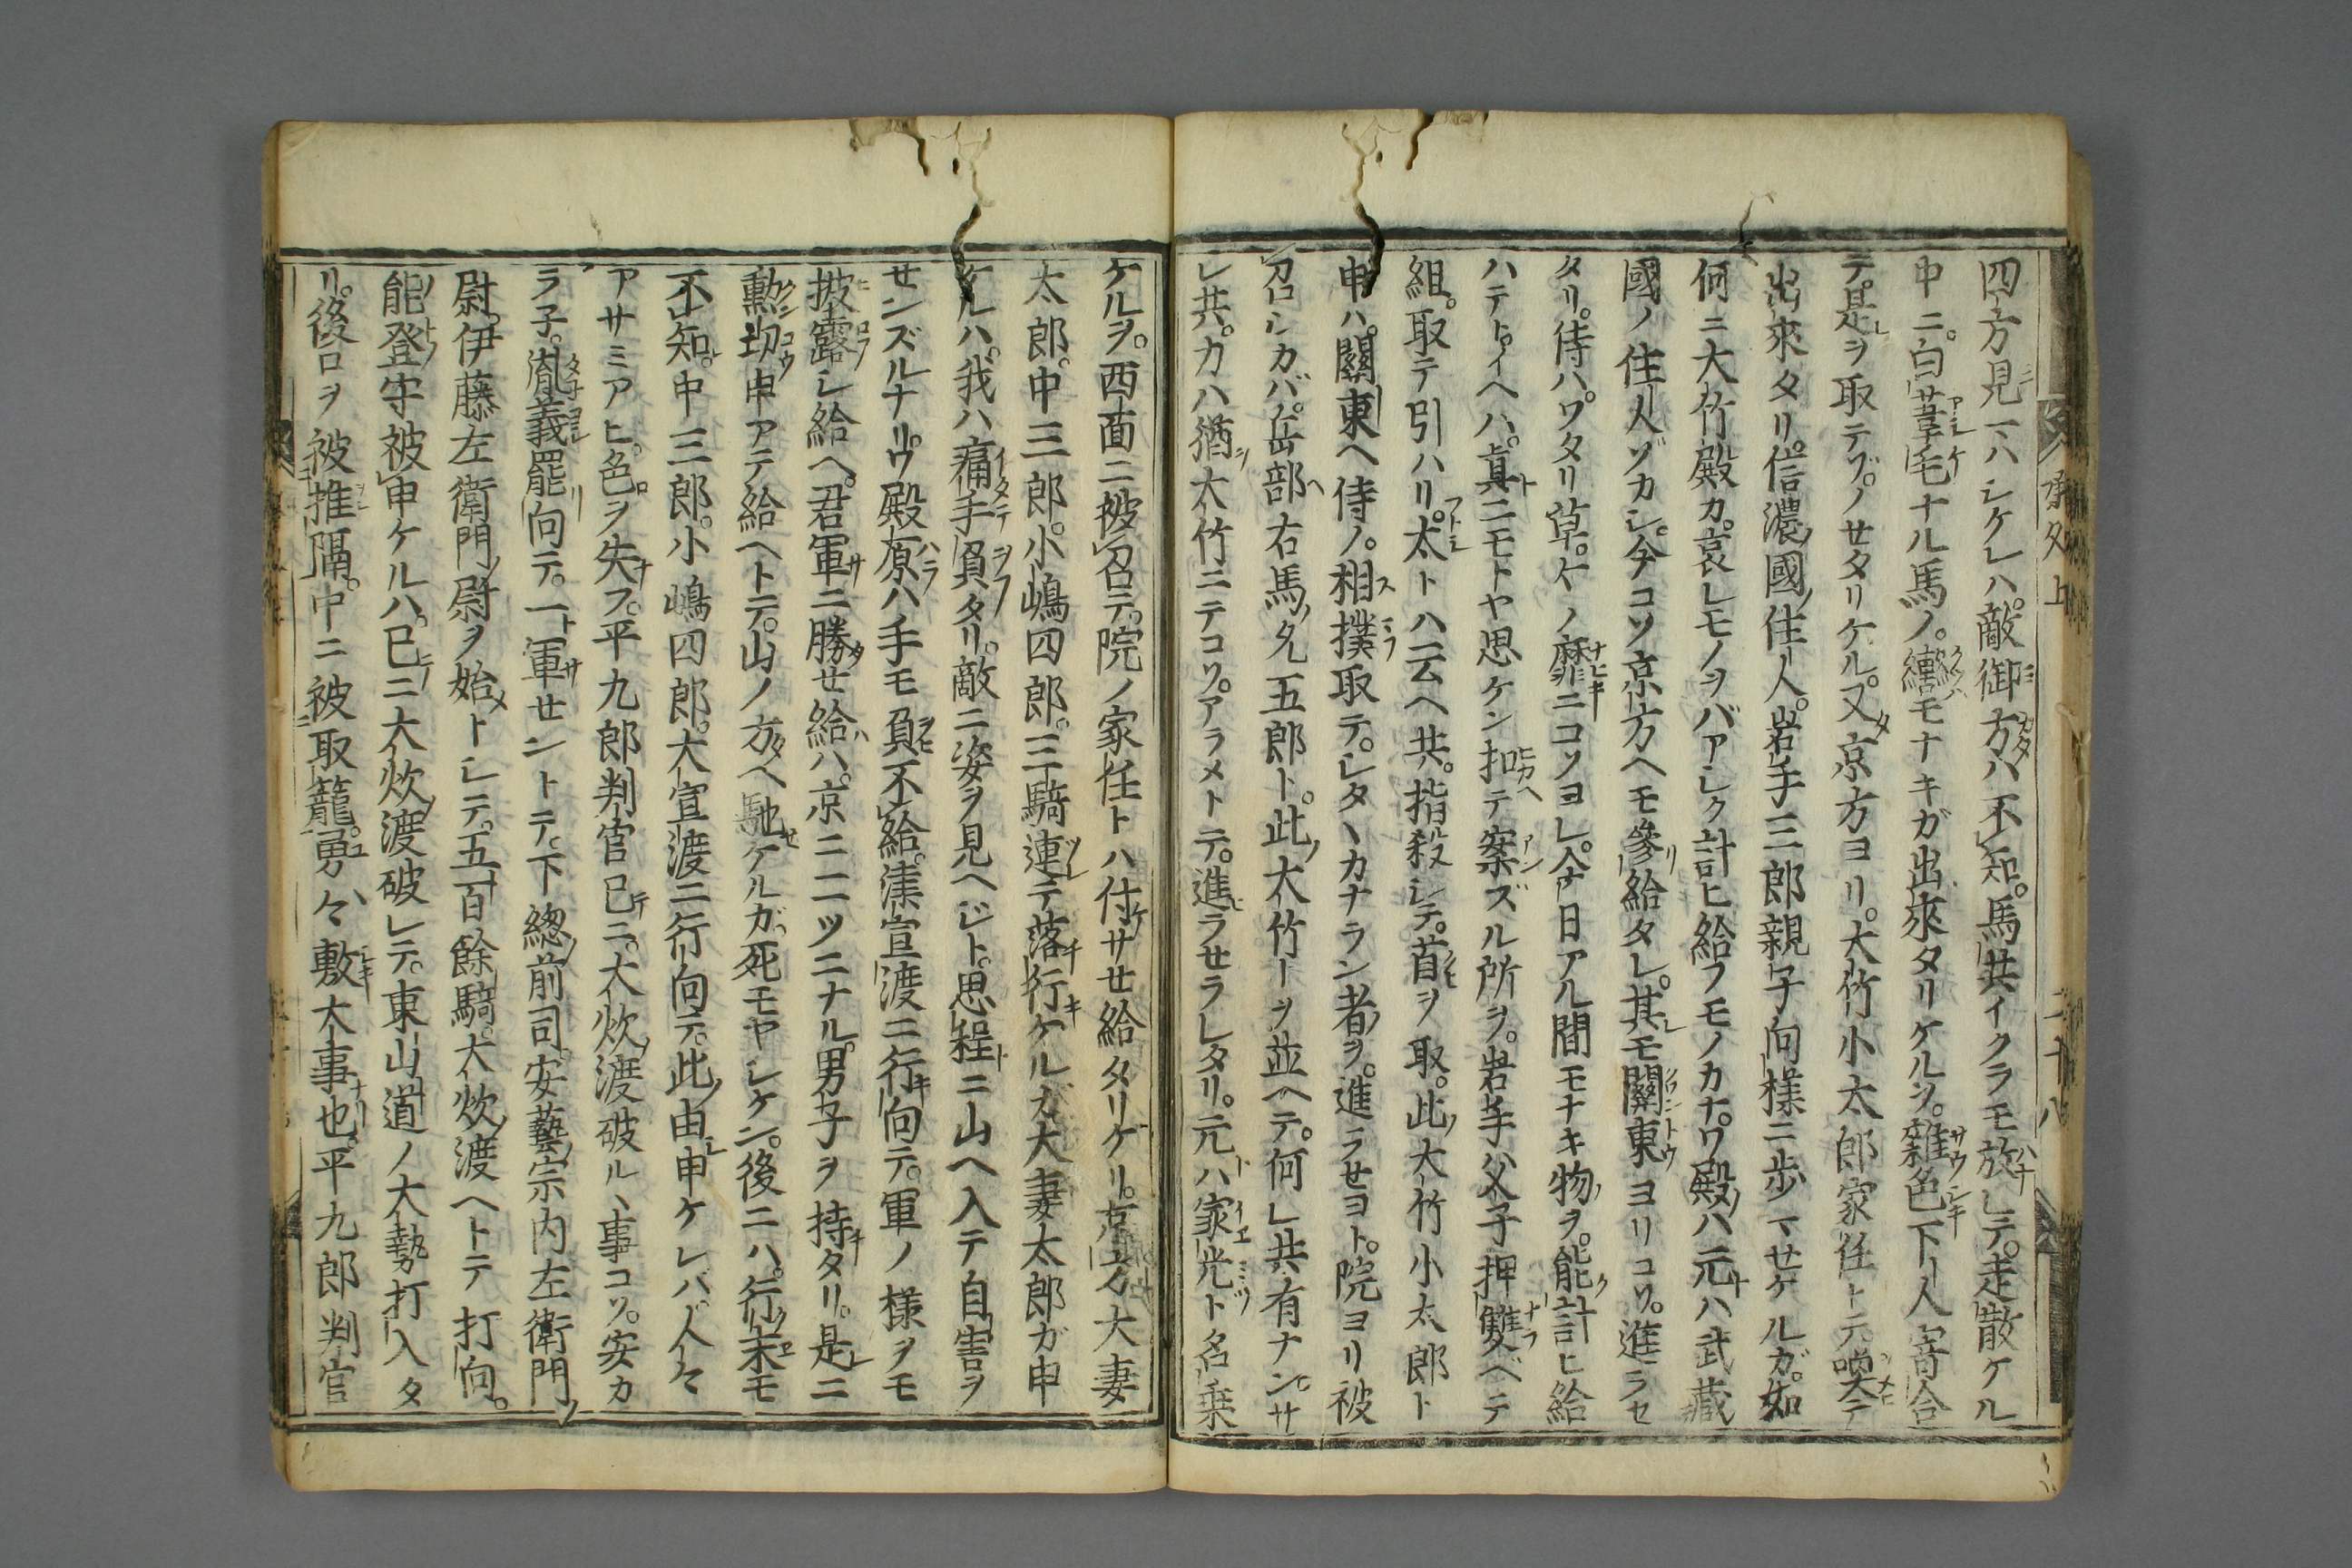 四方見マハシケレハ。敵御方ハ不知。馬共イクラモ放レテ。走散ケル
中ニ。白葦毛ナル馬ノ。轡モナキガ出來タリケルヲ。雜色下人寄合
テ。是ヲ取テゾ。ノセタリケル。又京方ヨリ。大竹小太郎家任トテ。喚テ
出來タリ。信濃國住人。岩手三郎親子向樣ニ歩マセケルガ。如
何ニ大竹殿カ。哀レモノヲバアシク計ヒ給フモノカナ。ワ殿ハ元ハ武藏
國ノ住人ゾカシ。今コソ京方ヘモ參給タレ。其モ關東ヨリコソ。進ラセ
タリ。侍ハワタリ草。ケノ靡ニコソヨレ。今日アル間モナキ物ヲ。能計ヒ給
ハテトイヘハ。真ニモトヤ思ケン扣テ案ズル所ヲ。岩手父子押雙ベテ
組。取テ引ハリ。太トハ云ヘ共。指殺シテ。首ヲ取。此大竹小太郎ト
申ハ。關東ヘ侍ノ。相撲取テ。シタヽカナラン者ヲ。進ラせヨト。院ヨリ被
召シカバ。岳部右馬允五郎ト。此大竹トヲ並ヘテ。何レ共有ナン。サ
レ共。力ハ猶大竹ニテコソ。アラメトテ。進ラせラレタリ。元ハ家光ト名乗
ケルヲ。西面ニ被召テ。院ノ家任トハ付サせ給タリケリ。京方大妻
太郎。中三郎。小嶋四郎。三騎連テ落行ケルガ。大妻太郎ガ申
ケルハ。我ハ痛手負タリ。敵ニ姿ヲ見ヘジト。思程ニ山ヘ入テ自害ヲ
せンズルナリ。ワ殿原ハ手モ負不給。漆宣渡ニ行向テ。軍ノ樣ヲモ
披露シ給ヘ。君軍ニ勝せ給ハ。京ニ二ツニナル。男子ヲ持タリ。是ニ
勲功申アテ給ヘトテ。山ノ方ヘ馳ケルガ。死モヤシケン。後ニハ。行末モ
不知。中三郎。小嶋四郎。大宣渡ニ行向テ。此由申ケレバ。人々
アサミアヒ。色ヲ失フ。平九郎判官已ニ。大炊渡破ルヽ事コソ。安カ
ラ子。胤義罷向テ。一軍せントテ。下總前司。安藝宗内左衛門
尉。伊藤左衛門尉ヲ始トシテ。五百餘騎。大炊渡ヘトテ打向。
能登守被申ケルハ。已ニ大炊渡破レテ。東山道ノ大勢打入タ
リ。後口ヲ被推隔。中ニ被取籠。勇々敷大事也。平九郎判官
承久上
二十八